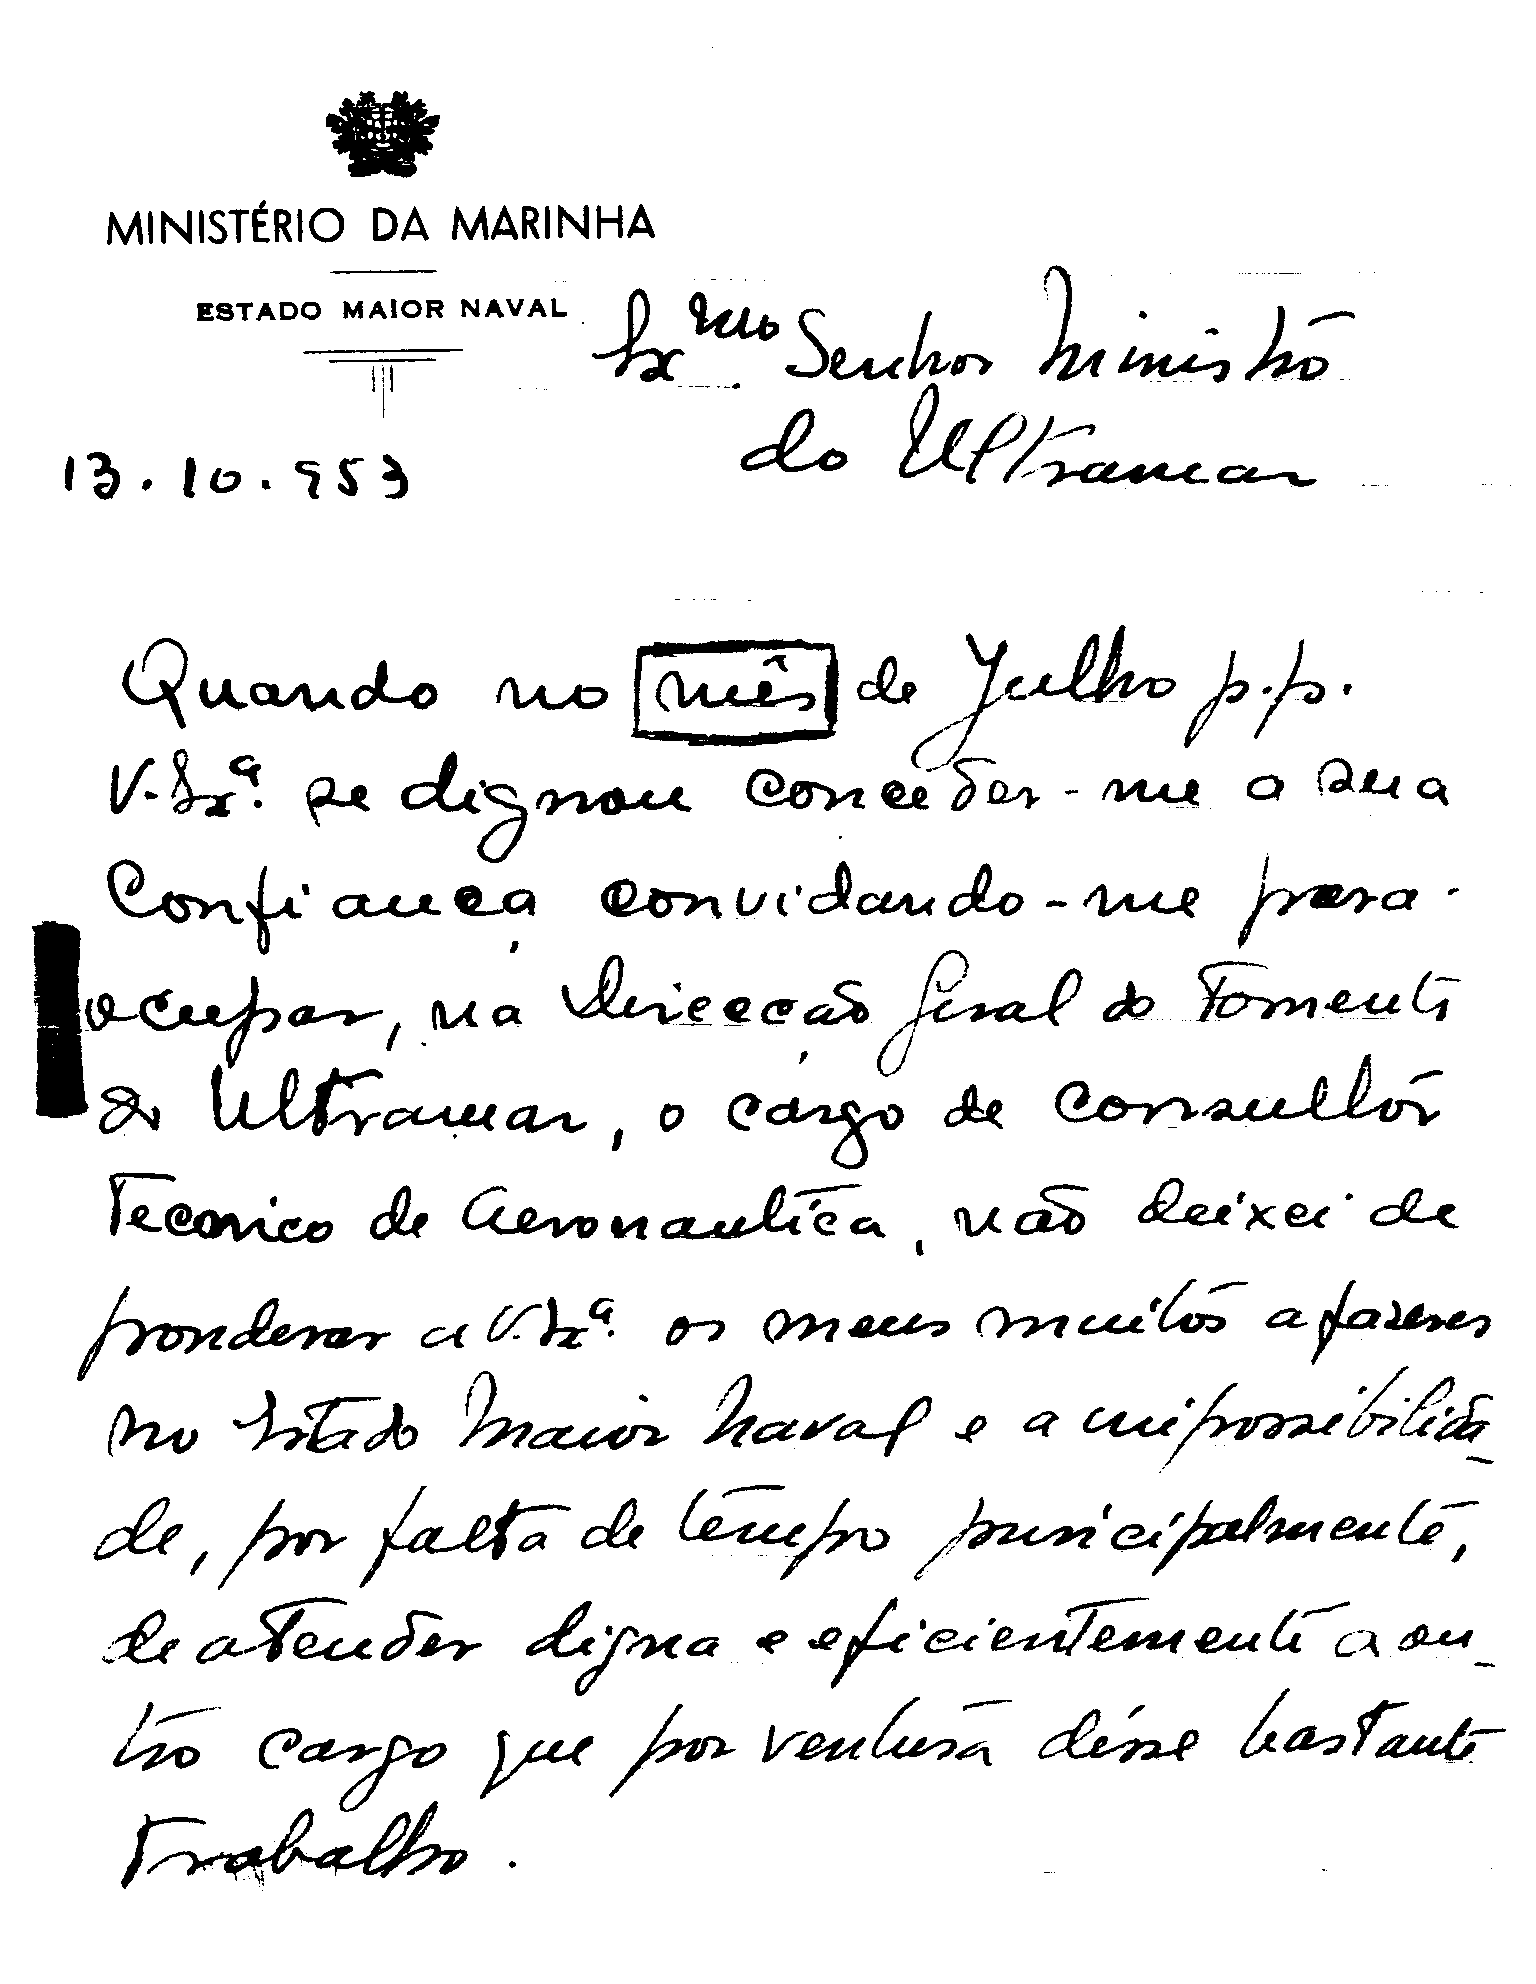 MINISTÉRIO DA MARINHA
ESTADO MAIOR NAVAL
Exmo. Senhor Ministro
do Ultramar
13.10.953
Quando no mês de Julho p.p.
V. Exª. se dignou conceder-me a sua
Confiança convidando-me para
ocupar, na Direcção Geral do Fomento
do Ultramar, o cargo de consultor
Tecnico de Aeronautica, não deixei de
ponderar a V. Exª. os meus muitos afazeres
no Estado Maior Naval e a impossibilida-
de, por falta de tempo principalmente,
de atender digna e eficientemente a ou-
tro cargo que por ventura désse bastante
Trabalho.